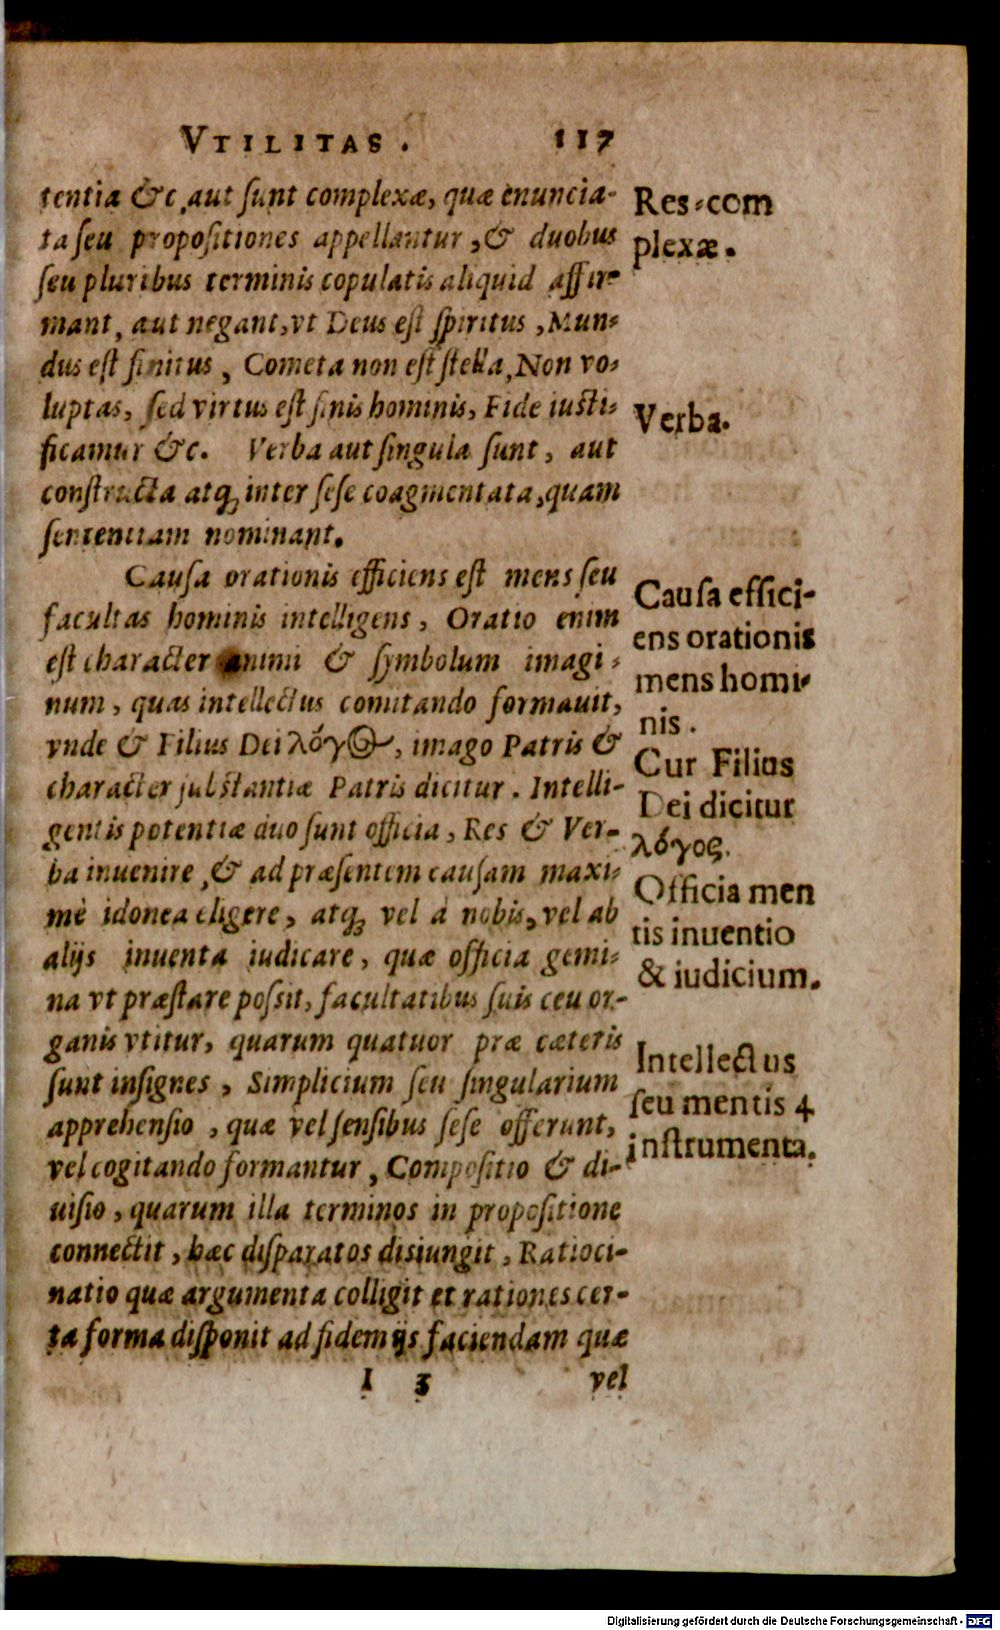 VTILITAS. 117
tentia &c, aut ſunt complexæ, quæ enuncia-
ta ſeu propoſitiones appellantur, & duobus
ſeu pluribus terminis copulatis aliquid affir-
mant, aut negant, vt Deus eſt ſpiritus, Mun-
dus eſt finitus, Cometa non eſt ſtella, Non vo-
luptas, ſed virtus eſt finis hominis, Fide iuſti-
ficamur &c. Verba aut ſingula ſunt, aut
conſtructa atq; inter ſeſe coagmentata, quam
ſententiam nominant.
Cauſa orationis efficiens eſt mens ſeu
facultas hominis intelligens, Oratio enim
eſt character animi & ſymbolum imagi-
num, quas intellectus comitando formauit,
vnde & Filius Dei λόγος, imago Patris &
character ſubſtantiæ Patris dicitur. Intelli-
gentis potentiæ duo ſunt officia, Res & Ver-
ba inuenire, & ad præſentem cauſam maxi-
mè idonea eligere, atq; vel à nobis, vel ab
alijs inuenta iudicare, quæ officia gemi-
na vt præſtare poſsit, facultatibus ſuis ceu or-
ganis vtitur, quarum quatuor præ cæteris
ſunt inſignes, Simplicium ſeu ſingularium
apprehenſio, quæ vel ſenſibus ſeſe offerunt,
vel cogitando formantur, Compoſitio & di-
uiſio, quarum illa terminos in propoſitione
connectit, hæc diſparatos disiungit, Ratioci-
natio quæ argumenta colligit et rationes cer-
ta forma diſponit ad fidem ijs faciendam quæ
I 3 vel
Res com
plexæ.
Verba.
Cauſa effici-
ens orationis
mens homi-
nis.
Cur Filius
Dei dicitur
λόγος.
Officia men
tis inuentio
& iudicium.
Intellectus
ſeu mentis 4
inſtrumenta.
Digitalisierung gefördert durch die Deutsche Forschungsgemeinschaft - DFG